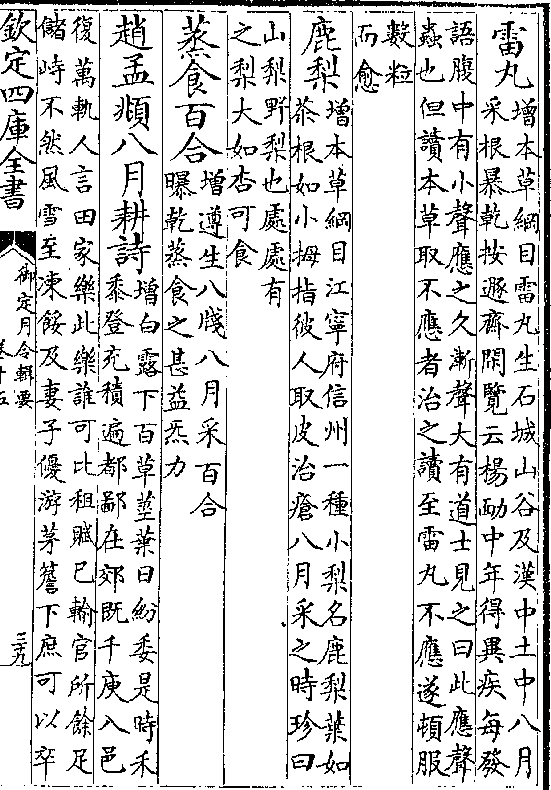 雷丸
增本草綱目雷丸生石城山谷及漢中土中八月
采根暴乾按遯齋閑覽云楊勔中年得異疾每發
語腹中有小聲應之久漸聲大有道士見之曰此應聲
蟲也但讀本草取不應者治之讀至雷丸不應遂頓服
數粒
而愈
鹿梨
增本草綱目江寧府信州一種小梨名鹿梨葉如
茶根如小拇指彼人取皮治瘡八月采之時珍曰
山梨野梨也處處有
之梨大如杏可食
蒸食百合
增遵生八牋八月采百合
曝乾蒸食之甚益炁力
趙孟頫八月耕詩
增白露下百草莖葉日紛委是時禾
黍登充積遍都鄙在郊既千庾入邑
復萬軌人言田家樂此樂誰可比租賦已輸官所餘足
儲峙不然風雪至凍餒及妻子優游茅簷下庶可以卒
欽定四庫全書
御定月令輯要
卷十五
三九